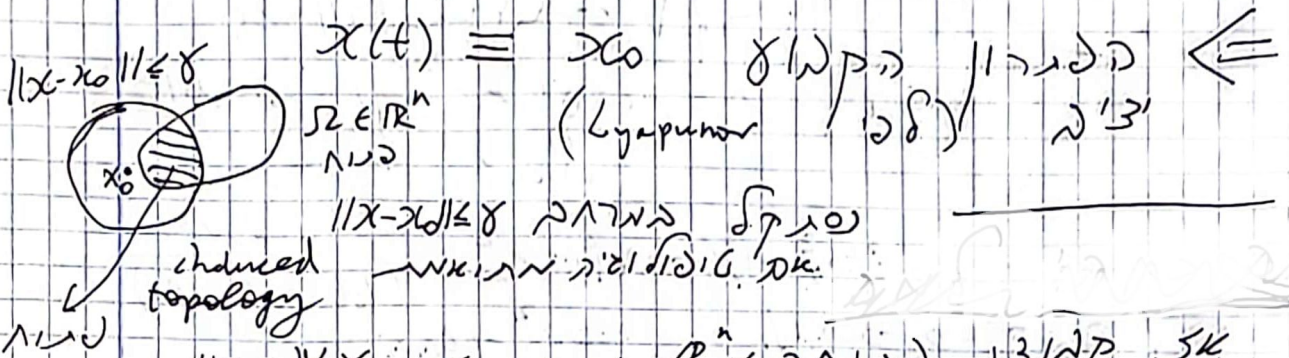 ⇐ הפתרון הקבוע x(t) ≡ x₀
יציב (לפי Lyapunov)
||x-x₀|| ≤ γ
x₀
Ω ∈ ℝⁿ
פתוח
נסתכל במרחב ||x-x₀|| ≤ γ
עם טופולוגיה מתאימה
induced
topology
פתוח
אז